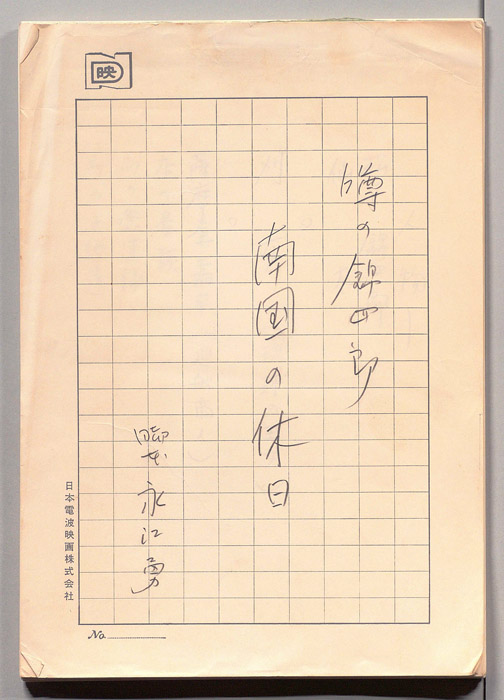 映
噂の錦四郎
南国の休日
脚本 永江勇
日本電波映画株式会社
No.